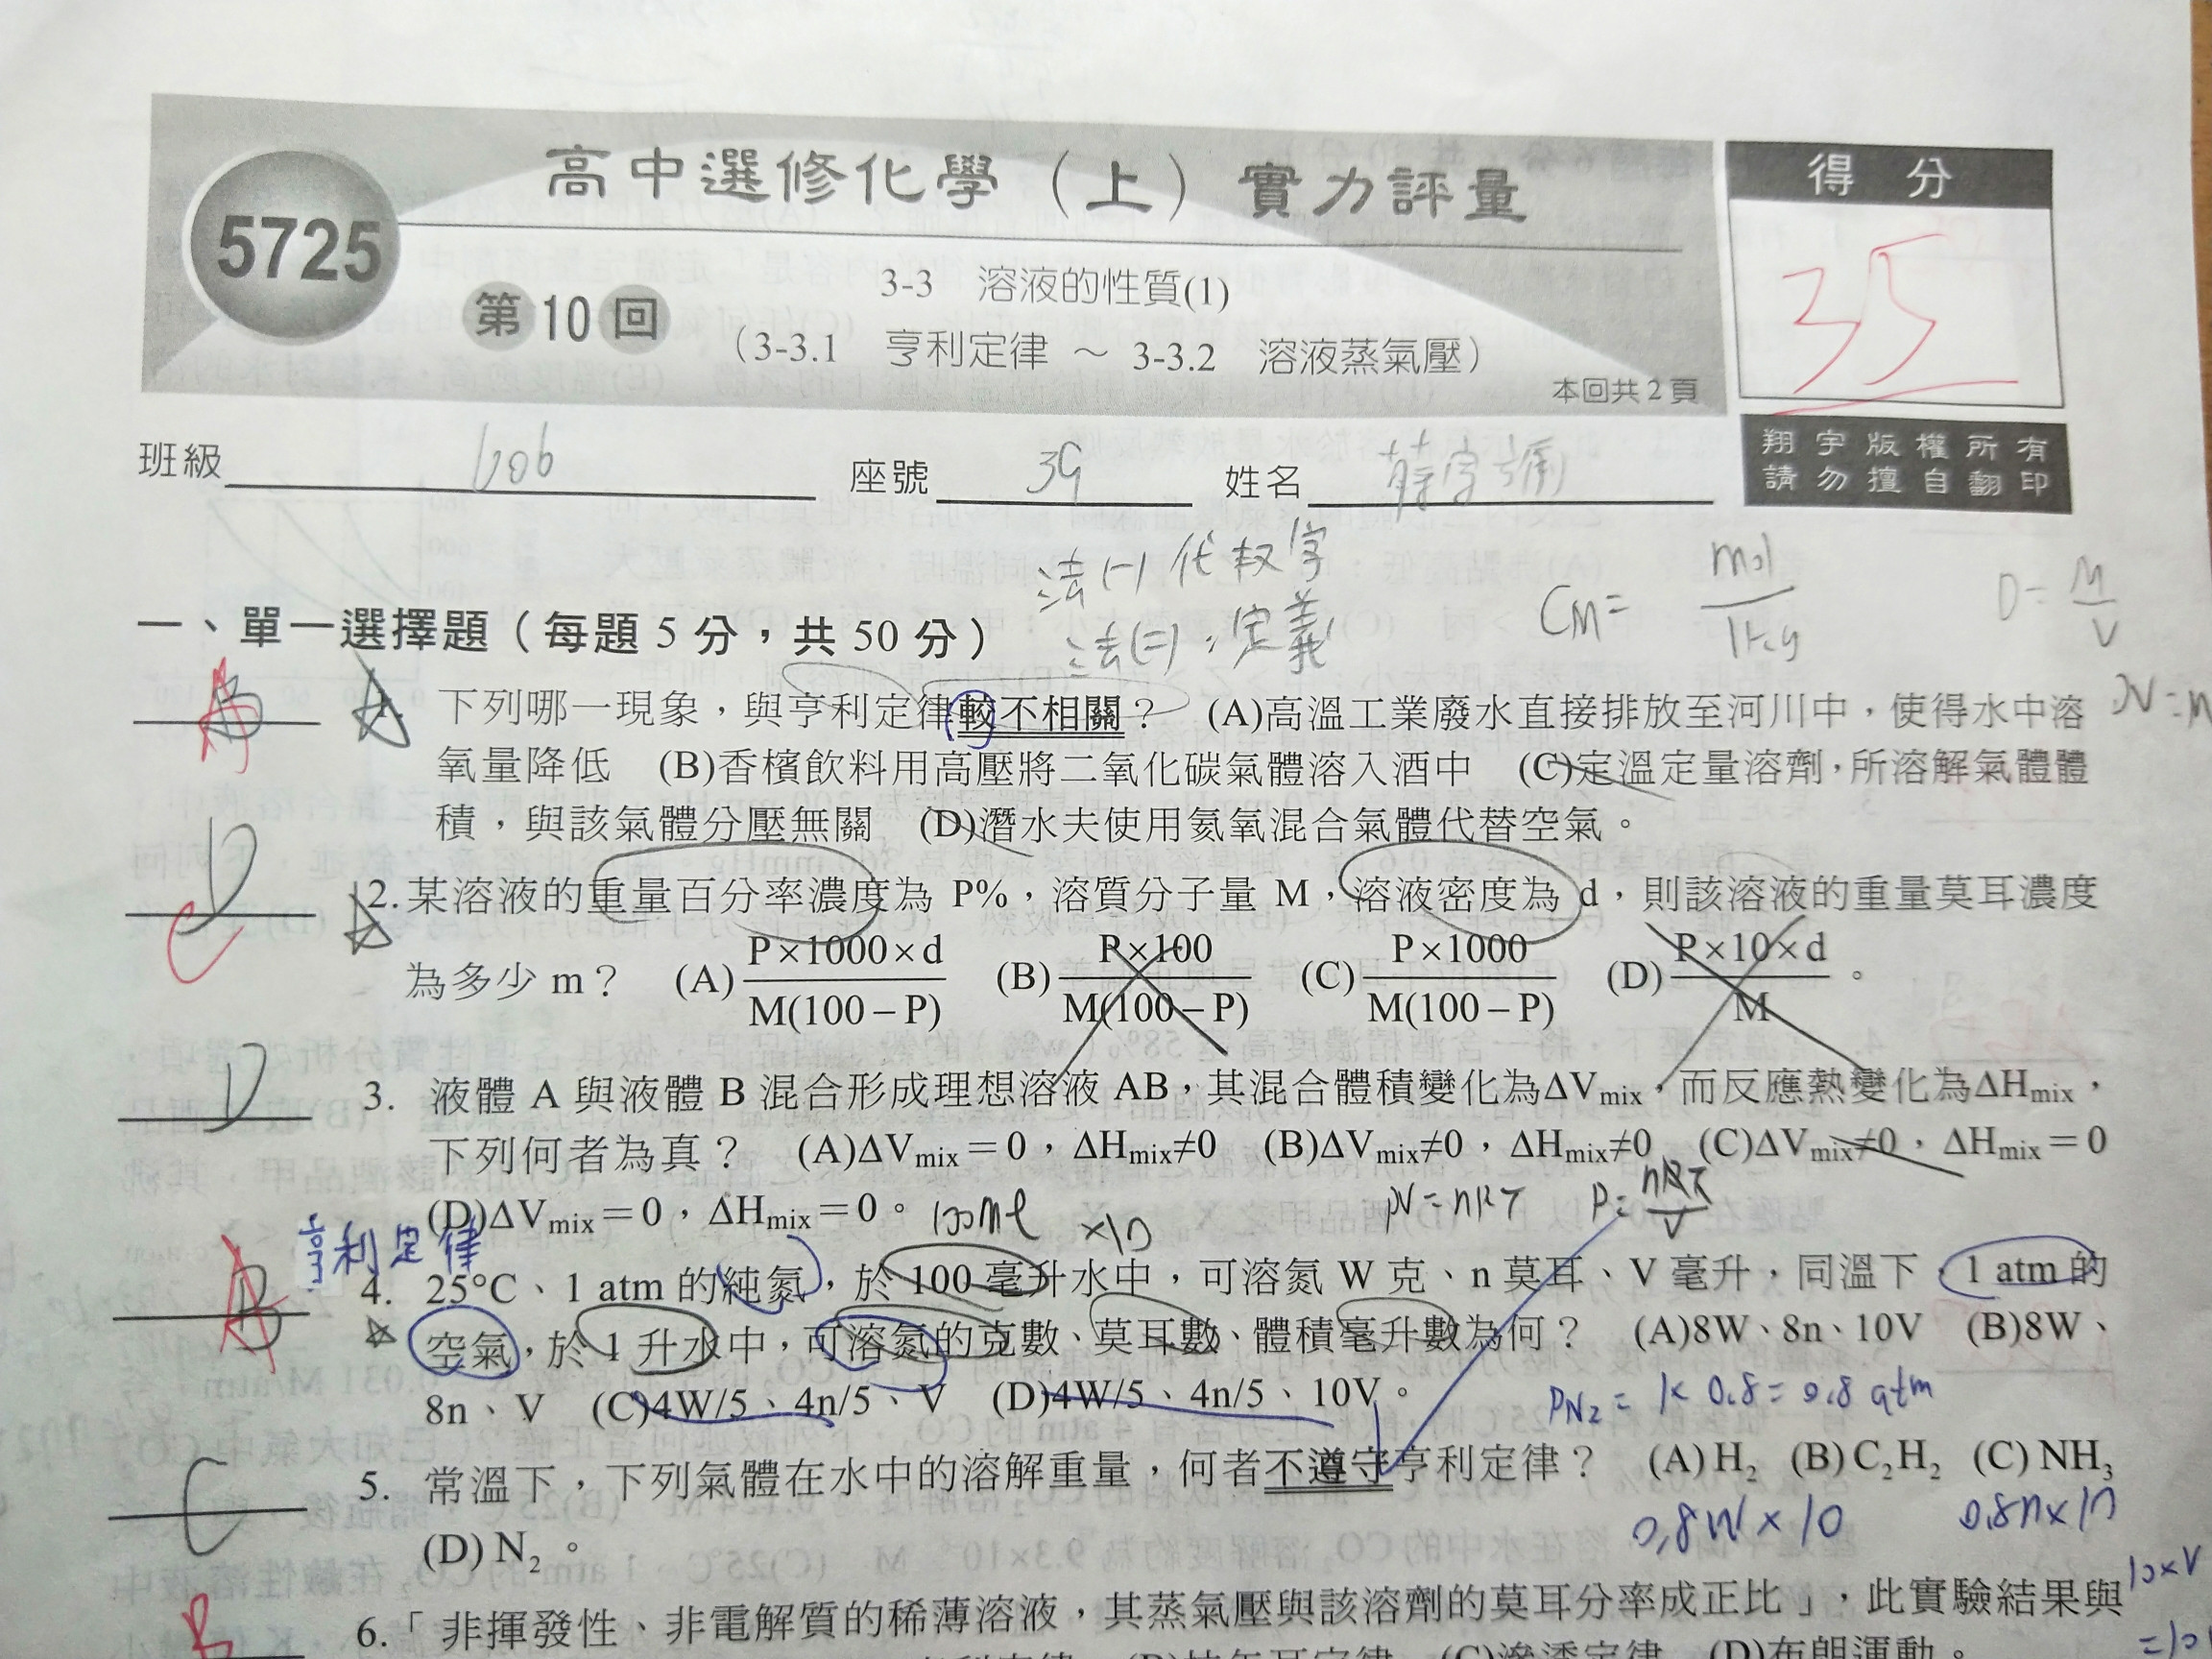 高中選修化學（上）實力評量
得分
5725
35
第10回
3-3 溶液的性質(1)
（3-3.1 亨利定律 ～ 3-3.2 溶液蒸氣壓）
本回共2頁
翔宇版權所有
請勿擅自翻印
班級 606 座號 39 姓名
法(一)代数字
法(二)，定義
CM= mol/1kg
D= M/V
一、單一選擇題（每題 5 分，共 50 分）
A 1. 下列哪一現象，與亨利定律較不相關？ (A)高溫工業廢水直接排放至河川中，使得水中溶
氧量降低 (B)香檳飲料用高壓將二氧化碳氣體溶入酒中 (C)定溫定量溶劑，所溶解氣體體
積，與該氣體分壓無關 (D)潛水夫使用氦氧混合氣體代替空氣。
D C 2. 某溶液的重量百分率濃度為 P%，溶質分子量 M，溶液密度為 d，則該溶液的重量莫耳濃度
為多少 m？ (A) P×1000×d/M(100－P) (B) P×100/M(100－P) (C) P×1000/M(100－P) (D) P×10×d/M 。
D 3. 液體 A 與液體 B 混合形成理想溶液 AB，其混合體積變化為ΔVmix，而反應熱變化為ΔHmix，
下列何者為真？ (A)ΔVmix＝0，ΔHmix≠0 (B)ΔVmix≠0，ΔHmix≠0 (C)ΔVmix≠0，ΔHmix＝0
(D)ΔVmix＝0，ΔHmix＝0。
100ml ×10 PV=nRT P= nRT/V
亨利定律
A B 4. 25°C、1 atm 的純氮，於 100 毫升水中，可溶氮 W 克、n 莫耳、V 毫升，同溫下，1 atm 的
空氣，於 1 升水中，可溶氮的克數、莫耳數、體積毫升數為何？ (A)8W、8n、10V (B)8W、
8n、V (C)4W/5、4n/5、V (D)4W/5、4n/5、10V。
PN2 = 1×0.8=0.8 atm
C 5. 常溫下，下列氣體在水中的溶解重量，何者不遵守亨利定律？ (A) H2 (B) C2H2 (C) NH3
(D) N2 。
0.8W×10 0.8n×10
10×V
B 6. 「非揮發性、非電解質的稀薄溶液，其蒸氣壓與該溶劑的莫耳分率成正比」，此實驗結果與
(D)布朗運動。